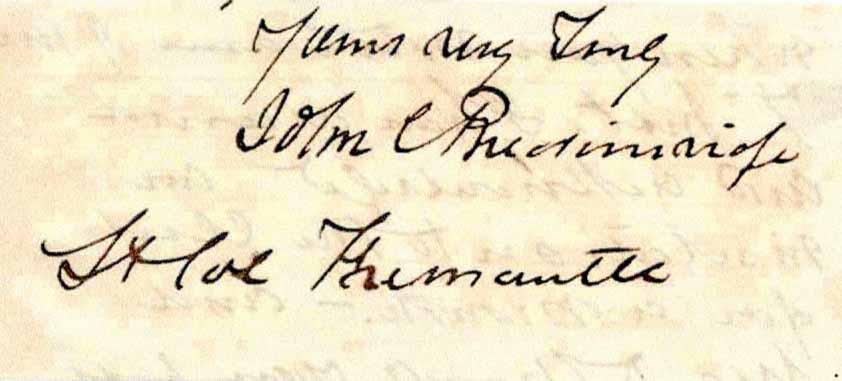 Yours very Truly
John C Breckinridge
Lt Col Fremantle